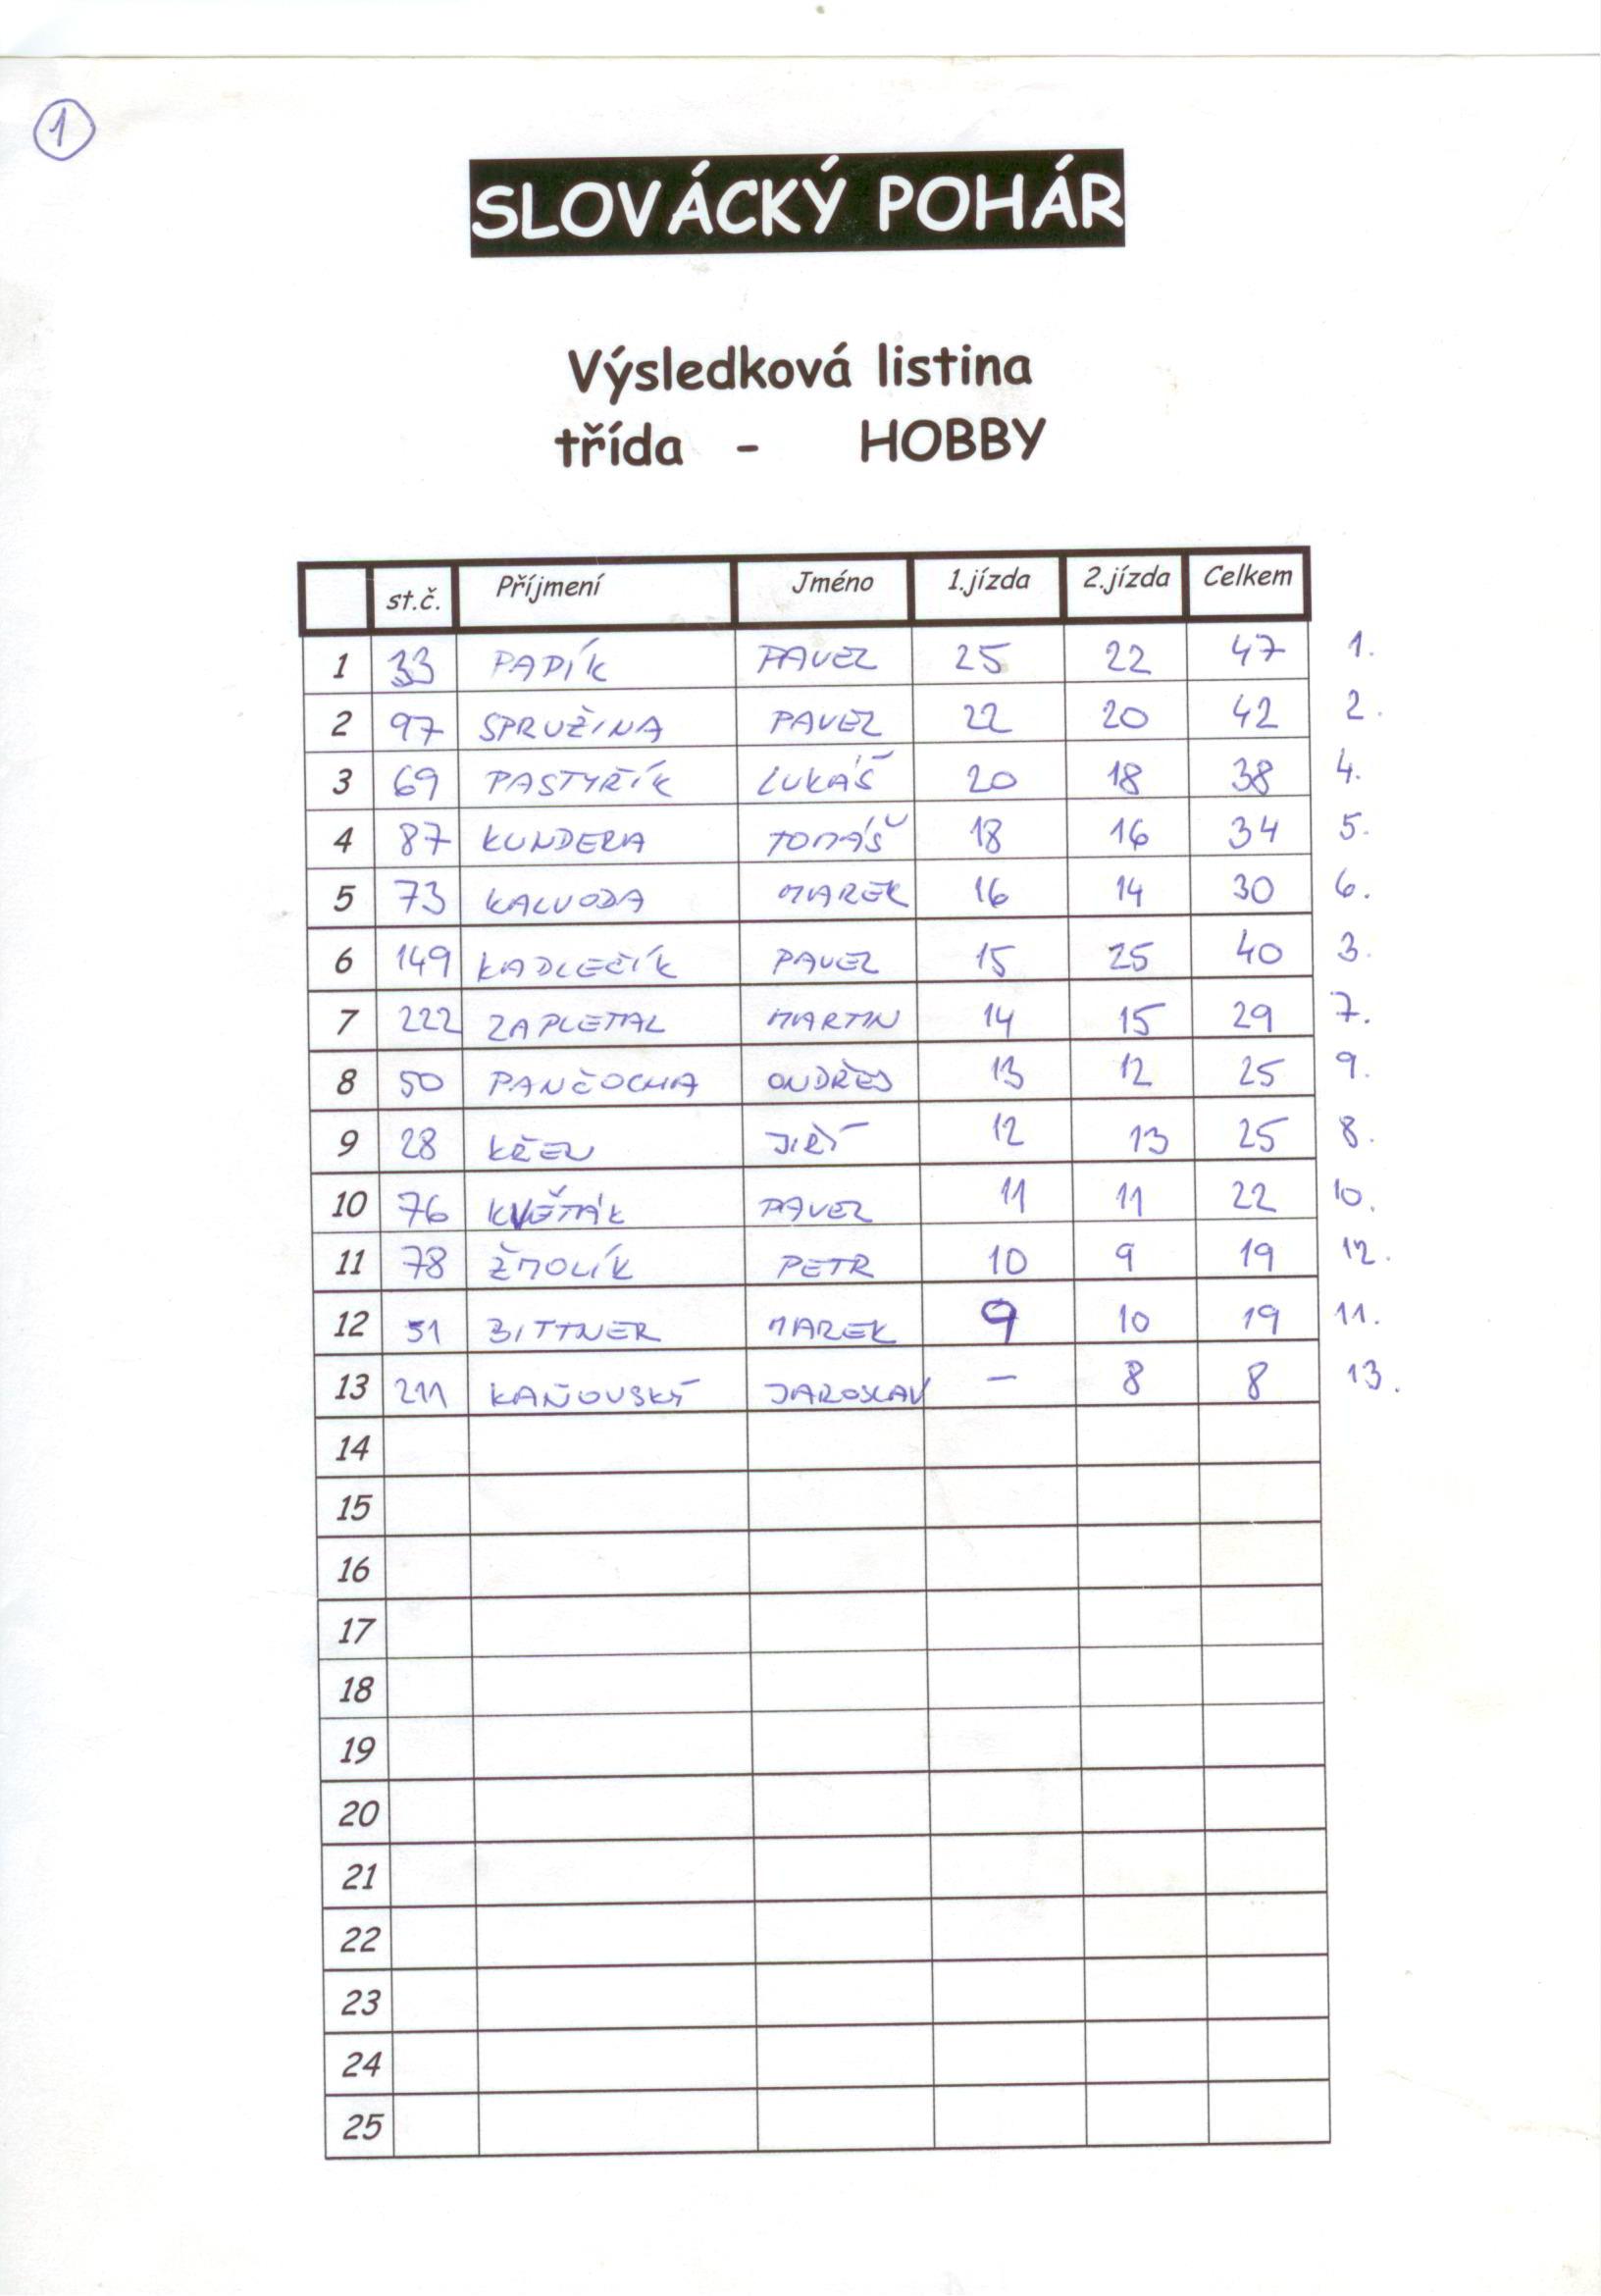 1
SLOVÁCKÝ POHÁR
Výsledková listina
třída - HOBBY
st.č. Příjmení Jméno 1.jízda 2.jízda Celkem
1 33 PAPÍK PAVEL 25 22 47 1.
2 97 SPRUŽINA PAVEL 22 20 42 2.
3 69 PASTYŘÍK LUKÁŠ 20 18 38 4.
4 87 KUNDERA TOMÁŠ 18 16 34 5.
5 73 KALVODA MAREK 16 14 30 6.
6 149 KADLEČÍK PAVEL 15 25 40 3.
7 222 ZAPLETAL MARTIN 14 15 29 7.
8 50 PANČOCHA ONDŘEJ 13 12 25 9.
9 28 KŘEN JIŘÍ 12 13 25 8.
10 76 KVĚŤÁK PAVEL 11 11 22 10.
11 78 ŽMOLÍK PETR 10 9 19 12.
12 51 BITTNER MAREK 9 10 19 11.
13 211 KAŇOVSKÝ JAROSLAV – 8 8 13.
14
15
16
17
18
19
20
21
22
23
24
25